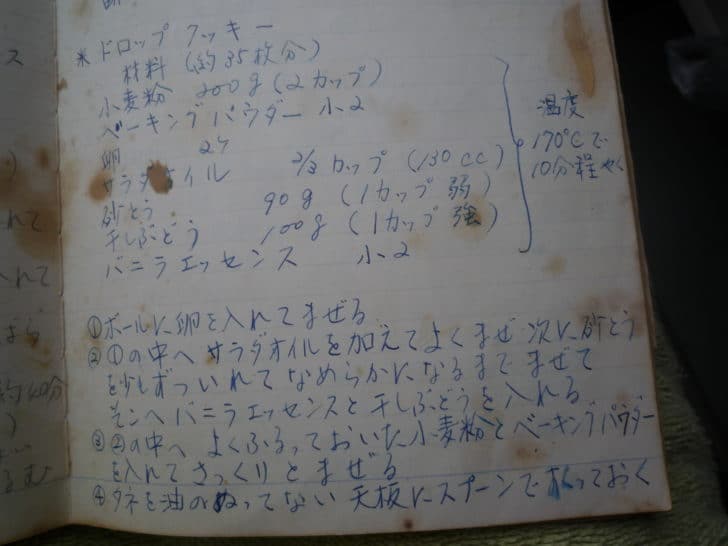 ※ ドロップクッキー
材料(約35枚分)
小麦粉 200g(2カップ)
ベーキングパウダー 小2
卵 2ケ
サラダオイル 2/3カップ(130cc)
砂とう 90g(1カップ弱)
干しぶどう 100g(1カップ強)
バニラエッセンス 小2
温度
170℃で
10分程やく
①ボールに卵を入れてまぜる
②①の中へサラダオイルを加えてよくまぜ次に砂とう
を少しずついれてなめらかになるまでまぜて
そこへバニラエッセンスと干しぶどうを入れる
③②の中へよくふるっておいた小麦粉とベーキングパウダー
を入れてさっくりとまぜる
④タネを油のぬってない天板にスプーンで おっておく
ス
)
れて
入れて
約40分
)
るむ